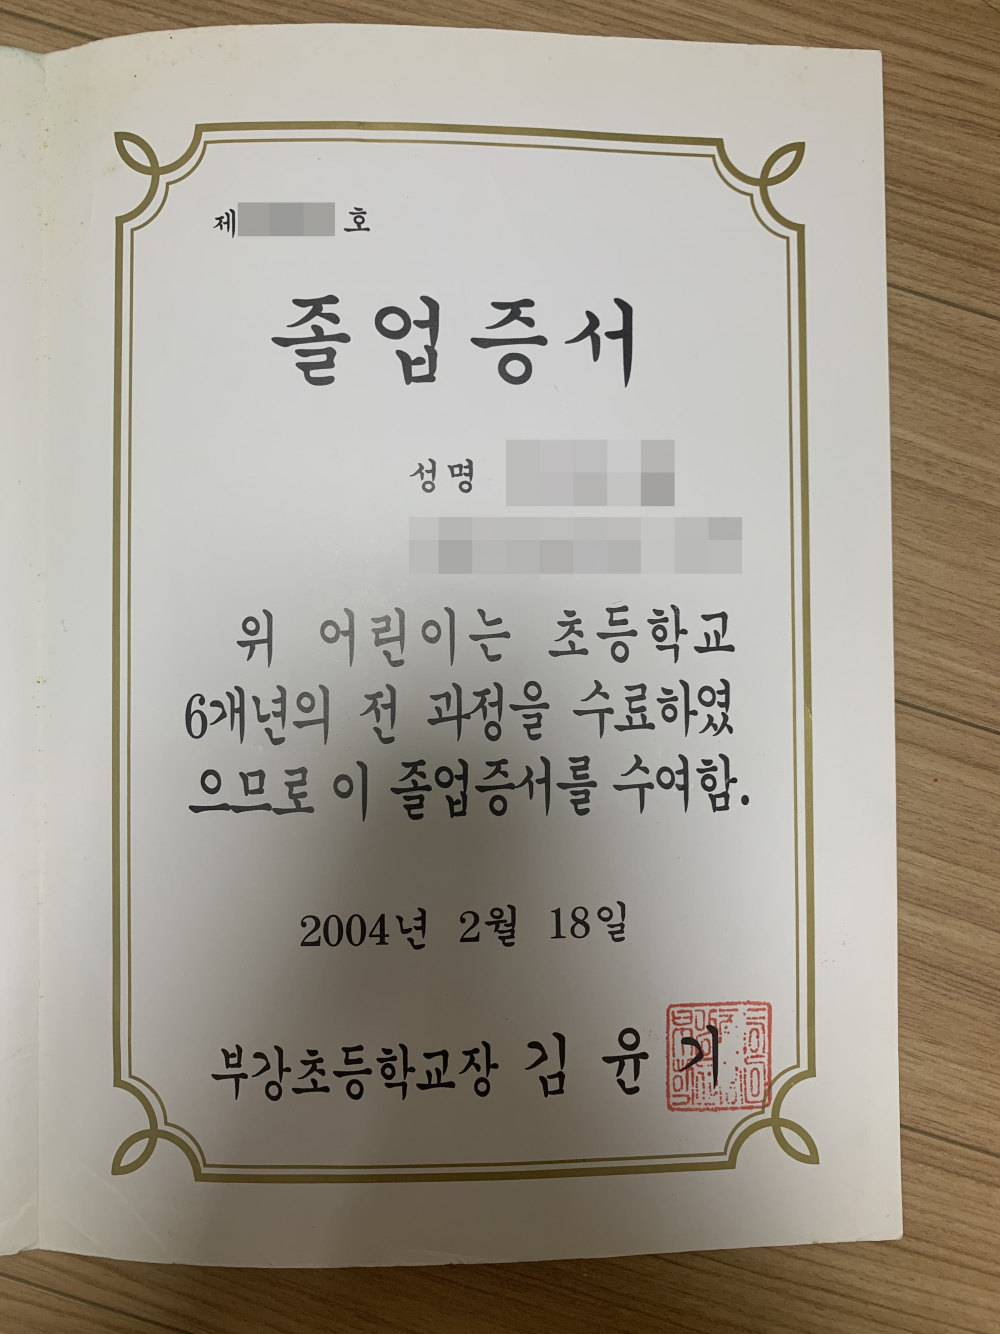 제 호
졸업증서
성명
위 어린이는 초등학교
6개년의 전 과정을 수료하였
으므로 이 졸업증서를 수여함.
2004년 2월 18일
부강초등학교장 김 윤 기